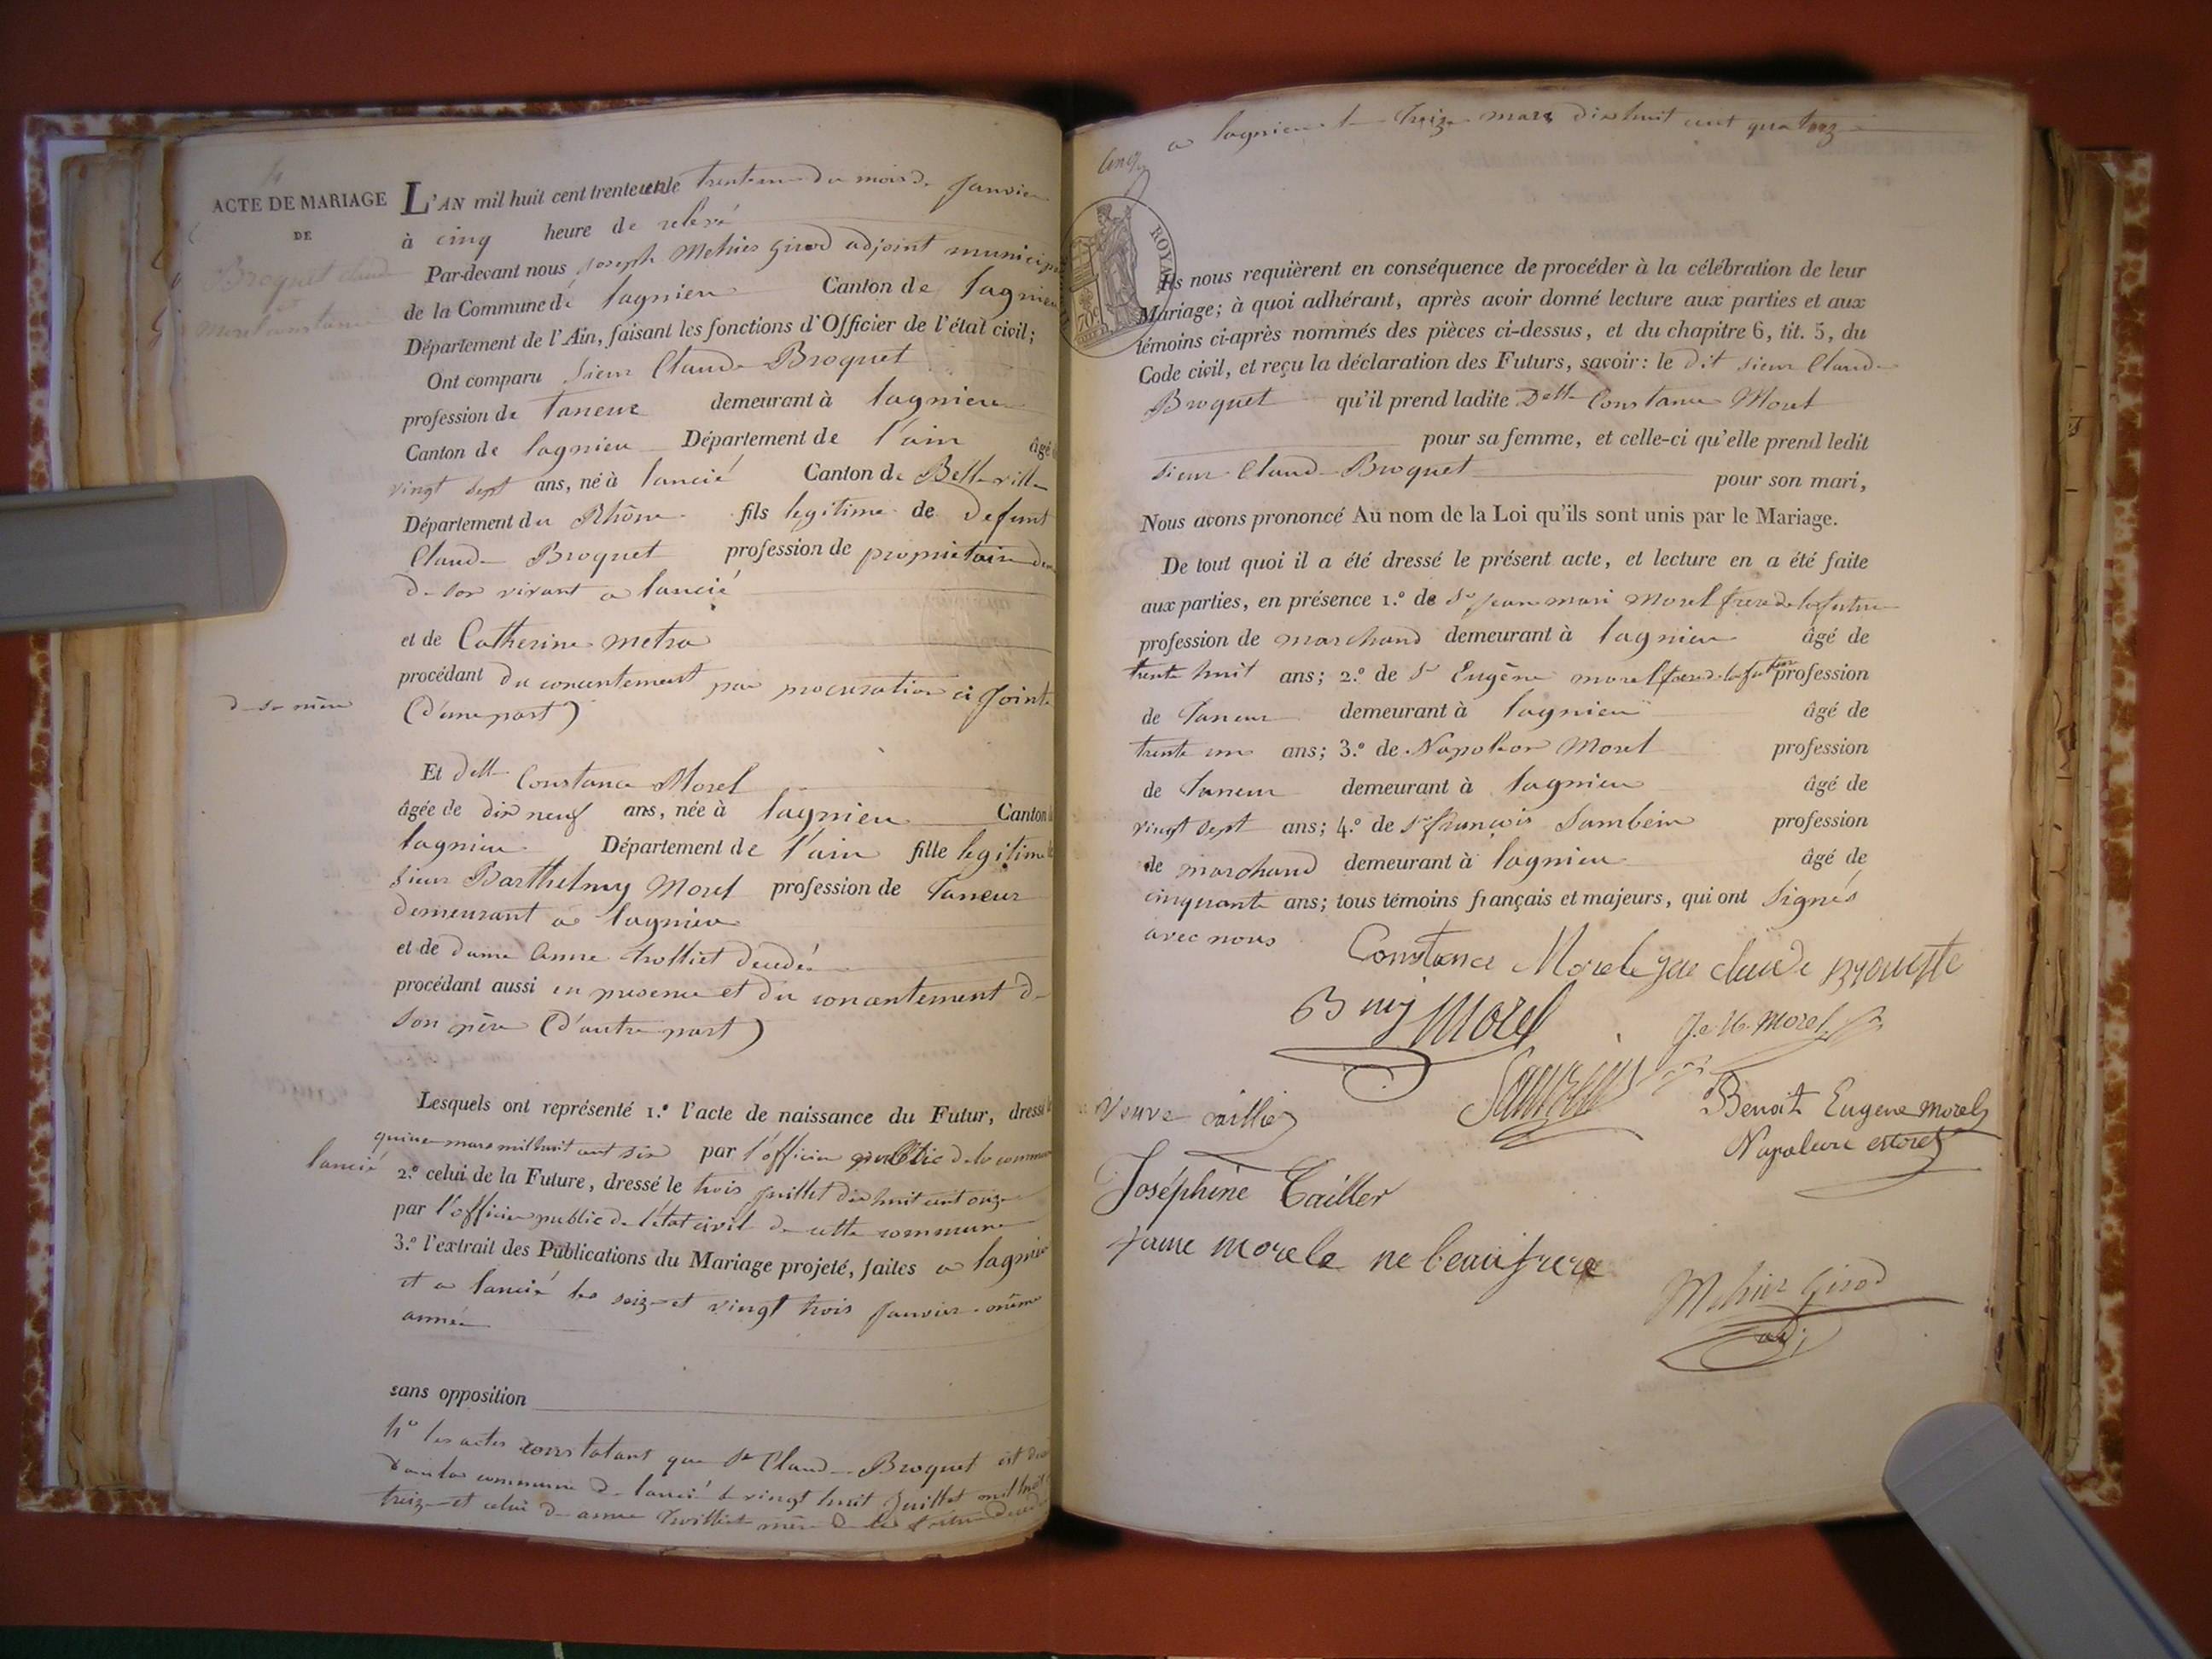 4
ACTE DE MARIAGE
DE
Broquet Claude
et
Morel Constance
L'AN mil huit cent trente un le trente un du mois de janvier
à cinq heure de relevé
Par-devant nous joseph Mehier Girod adjoint municip
de la Commune de lagnieu Canton de lagnieu
Département de l'Ain, faisant les fonctions d'Officier de l'état civil;
Ont comparu sieur Claude Broquet
profession de taneur demeurant à lagnieu
Canton de lagnieu Département de l'ain âgé
vingt sept ans, né à lancié Canton de Belleville
Département du Rhône fils legitime de defunt
Claude Broquet profession de propriétaire
de son vivant a lancié
et de Catherine metra
procédant du concentement par procuration ci jointe
de sa mère
(d'une part)
Et delle Constance Morel
âgée de dix neuf ans, née à lagnieu Canton
lagnieu Département de l'ain fille legitime
sieur Barthelmy Morel profession de taneur
demeurant a lagnieu
et de dame Anne trolliet decedée
procédant aussi en presence et du concentement de
son père (d'autre part)
Lesquels ont représenté 1.º l'acte de naissance du Futur, dressé
quinze mars mil huit cent six par l'officier public de la commune
lancié
2.º celui de la Future, dressé le trois juillet dix huit cent onze
par l'officier public de l'état civil de cette commune
3.º l'extrait des Publications du Mariage projeté, faites a lagnieu
et a lancié les seize et vingt trois janvier même
année
sans opposition
4º les actes constatant que Sr Claude Broquet est
dans la commune de lancié le vingt huit juillet mil huit
treize et celui de anne trolliet mère de la future
a lagnieu le treize mars dix huit cent quatorze
ROYAL
70c
Ils nous requièrent en conséquence de procéder à la célébration de leur
Mariage; à quoi adhérant, après avoir donné lecture aux parties et aux
témoins ci-après nommés des pièces ci-dessus, et du chapitre 6, tit. 5, du
Code civil, et reçu la déclaration des Futurs, savoir: le dit sieur Claude
Broquet qu'il prend ladite Delle Constance Morel
pour sa femme, et celle-ci qu'elle prend ledit
sieur Claude Broquet pour son mari,
Nous avons prononcé Au nom de la Loi qu'ils sont unis par le Mariage.
De tout quoi il a été dressé le présent acte, et lecture en a été faite
aux parties, en présence 1.º de Sr jean mari Morel frere de la future
profession de marchand demeurant à lagnieu âgé de
trente huit ans; 2.º de Sr Eugène morel frere de la future profession
de taneur demeurant à lagnieu âgé de
trente un ans; 3.º de Napoleon Morel profession
de taneur demeurant à lagnieu âgé de
vingt sept ans; 4.º de Sr françois Sambein profession
de marchand demeurant à lagnieu âgé de
cinquante ans; tous témoins français et majeurs, qui ont signés
avec nous
Constance Morel claude
Bmy Morel
J. M. Morel
Veuve
Benoit Eugene morel
Napoleon
Joséphine Tailler
Mehier Girod
adj